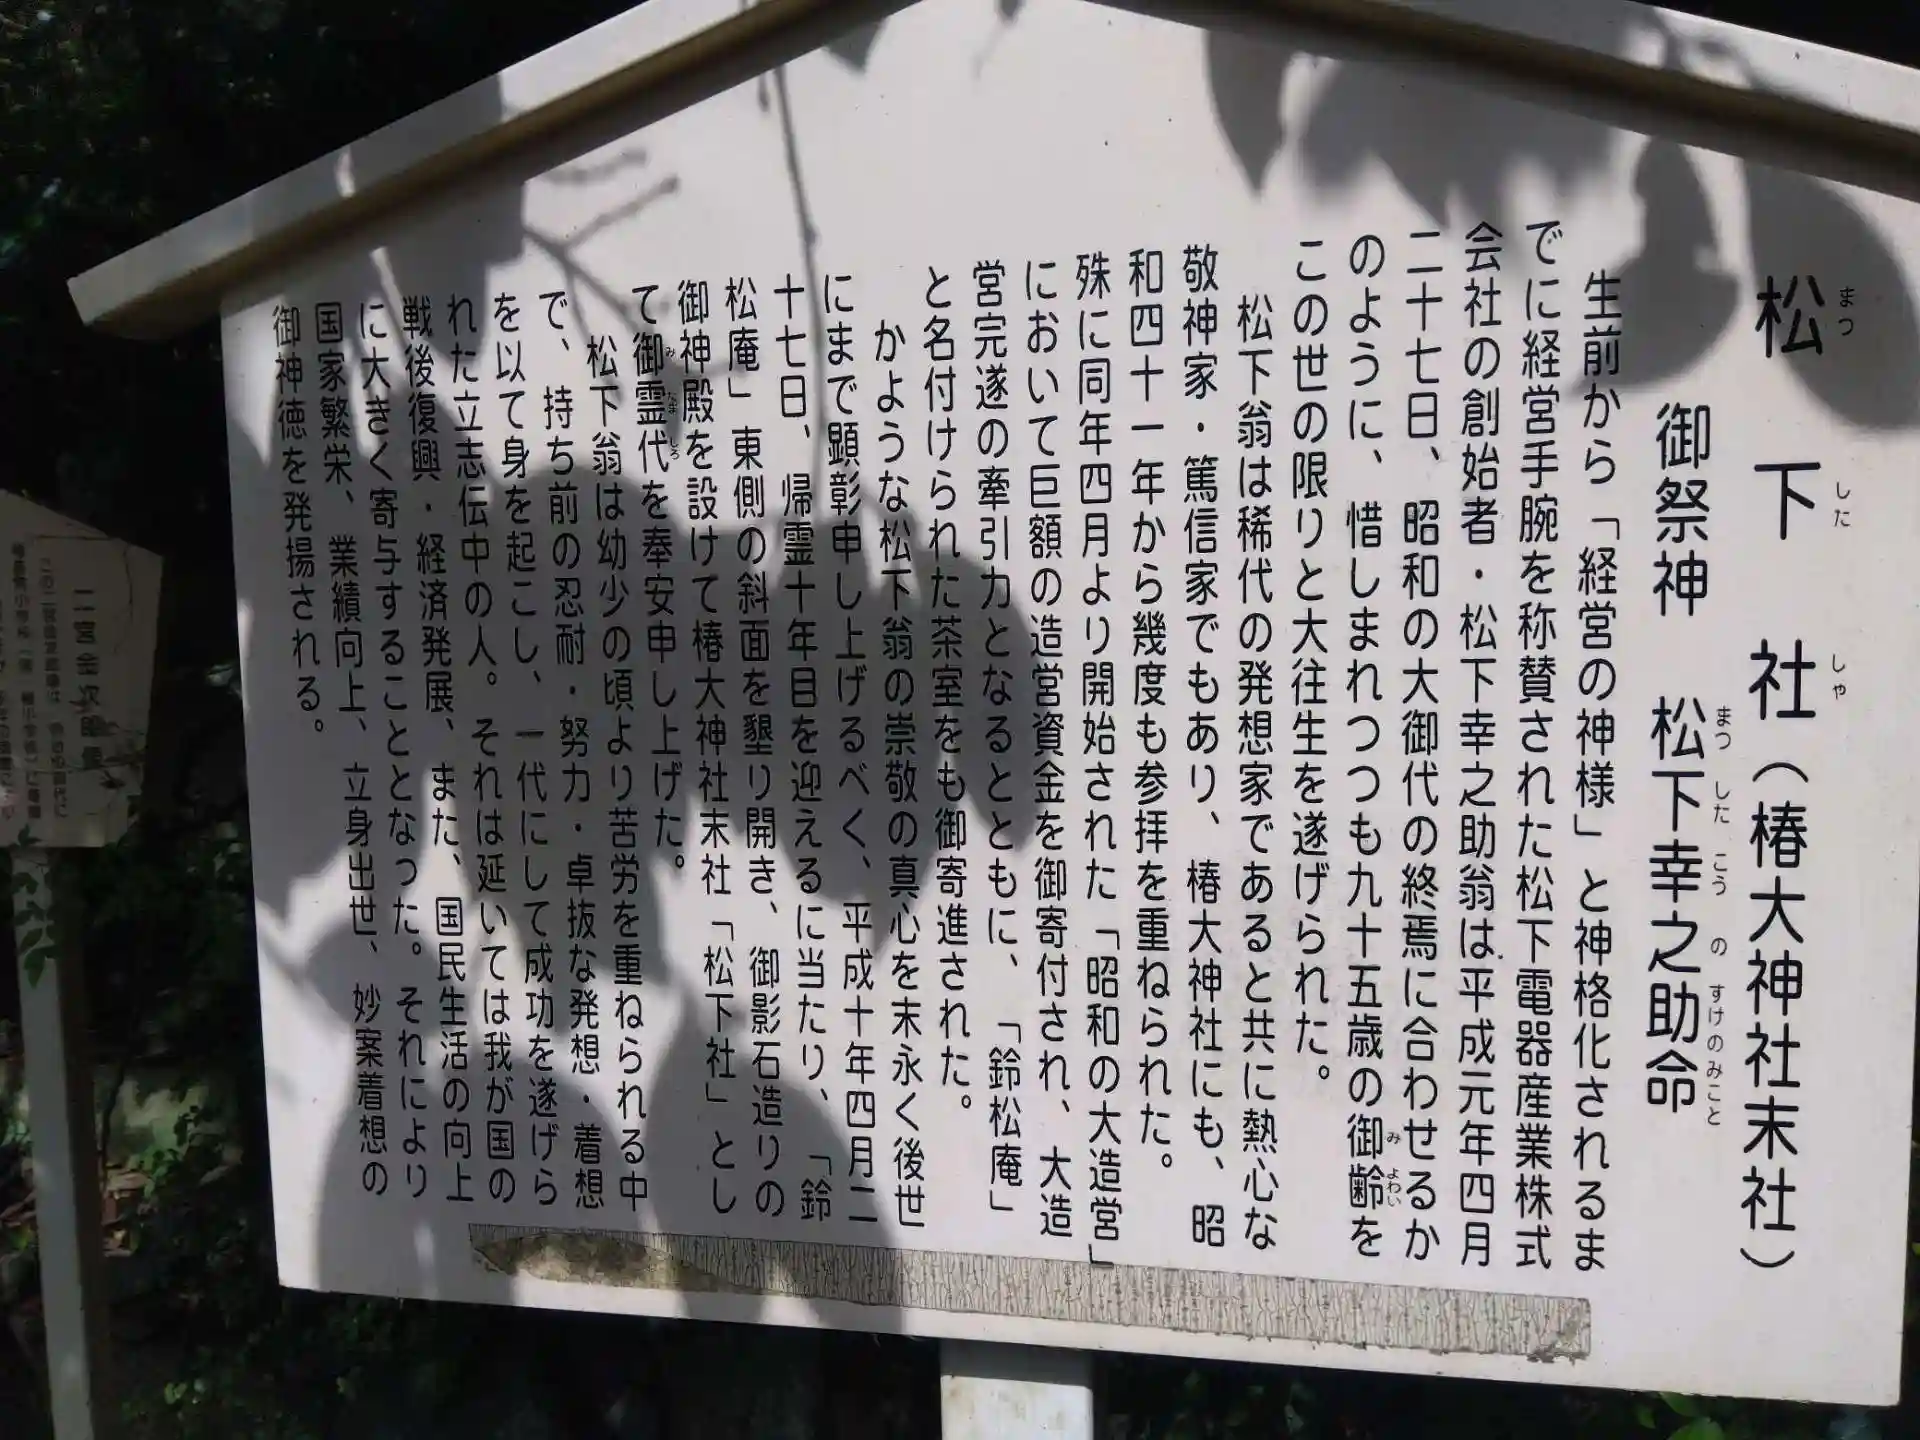 松下社（椿大神社末社）
まつ した しゃ
御祭神 松下幸之助命
まつ した こう の すけのみこと
生前から「経営の神様」と神格化されるま
でに経営手腕を称賛された松下電器産業株式
会社の創始者・松下幸之助翁は平成元年四月
二十七日、昭和の大御代の終焉に合わせるか
のように、惜しまれつつも九十五歳の御齢を
み よわい
この世の限りと大往生を遂げられた。
松下翁は稀代の発想家であると共に熱心な
敬神家・篤信家でもあり、椿大神社にも、昭
和四十一年から幾度も参拝を重ねられた。
殊に同年四月より開始された「昭和の大造営」
において巨額の造営資金を御寄付され、大造
営完遂の牽引力となるとともに、「鈴松庵」
と名付けられた茶室をも御寄進された。
かような松下翁の崇敬の真心を末永く後世
にまで顕彰申し上げるべく、平成十年四月二
十七日、帰霊十年目を迎えるに当たり、「鈴
松庵」東側の斜面を墾り開き、御影石造りの
御神殿を設けて椿大神社末社「松下社」とし
て御霊代を奉安申し上げた。
み たま しろ
松下翁は幼少の頃より苦労を重ねられる中
で、持ち前の忍耐・努力・卓抜な発想・着想
を以て身を起こし、一代にして成功を遂げら
れた立志伝中の人。それは延いては我が国の
戦後復興・経済発展、また、国民生活の向上
に大きく寄与することとなった。それにより
国家繁栄、業績向上、立身出世、妙案着想の
御神徳を発揚される。
二宮金次郎像